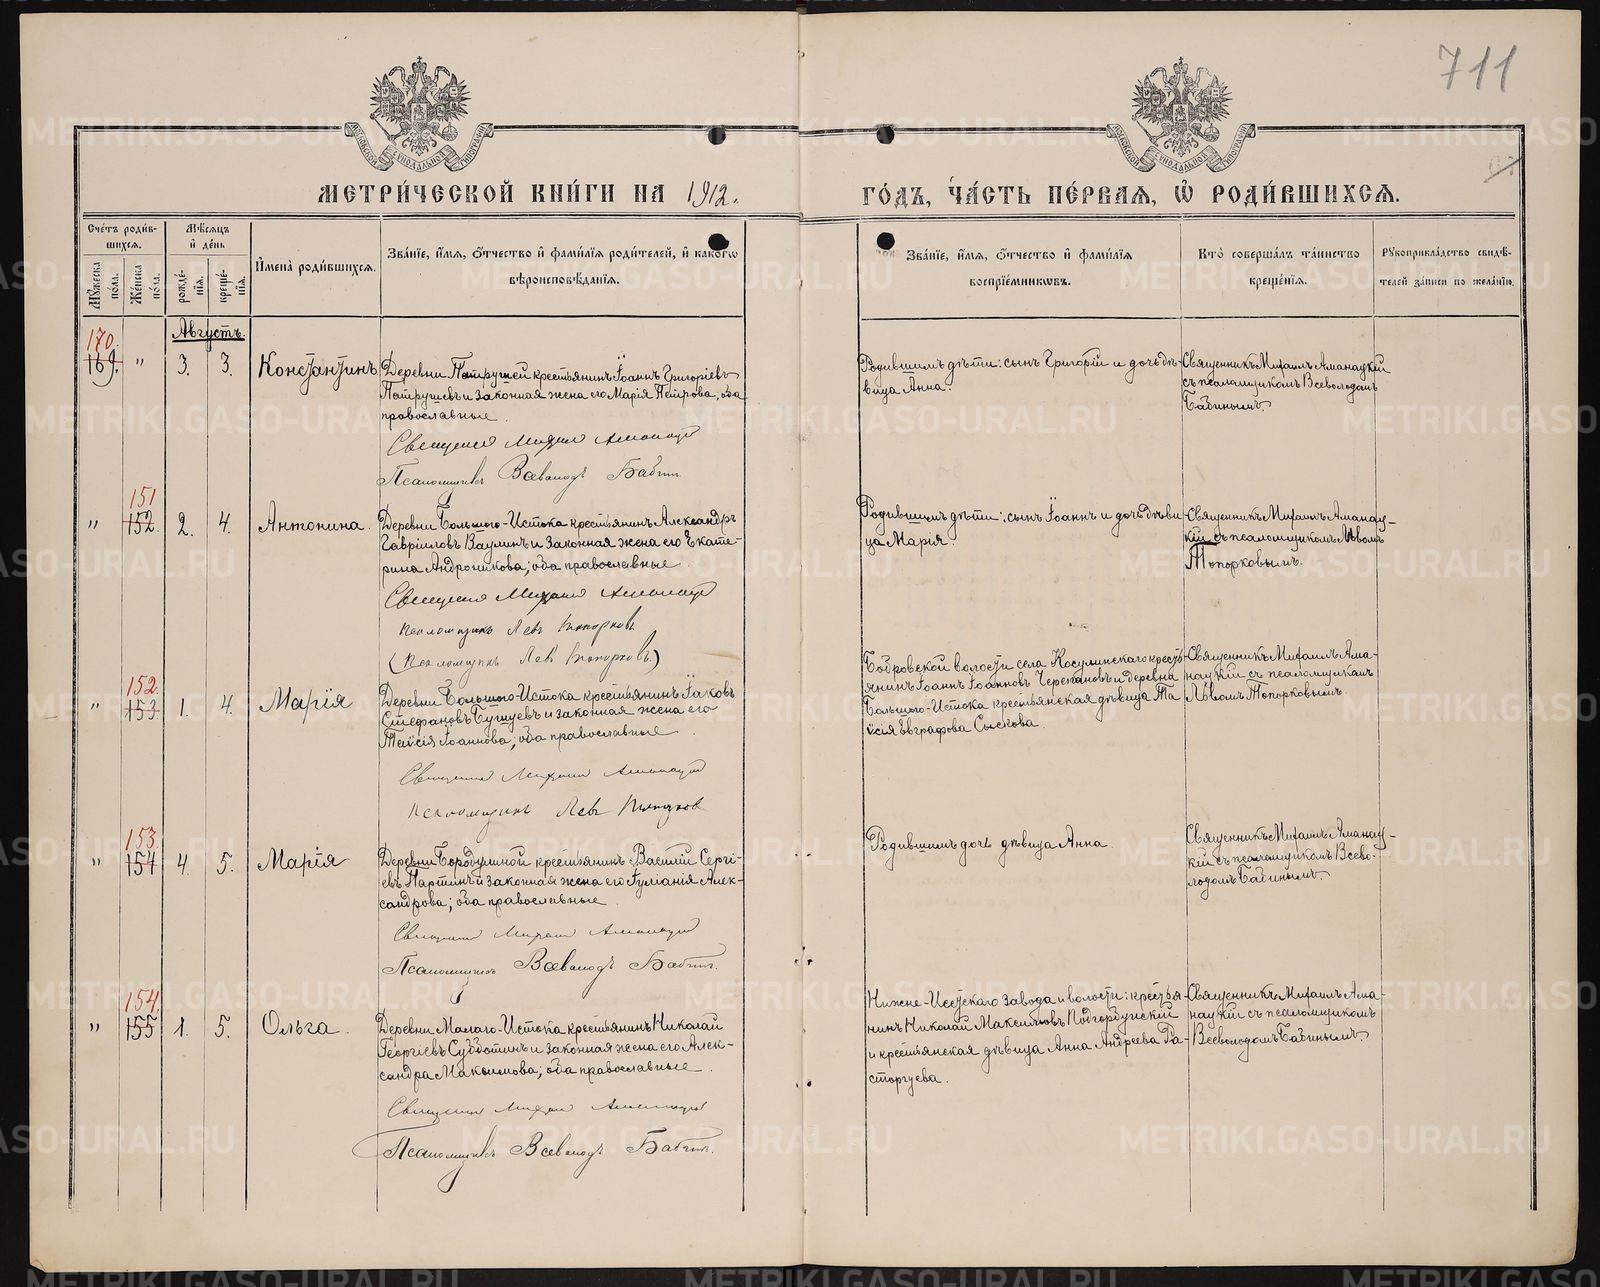 711
МЕТРИ́ЧЕСКОЙ КНИ́ГИ НА 1912.
ГО́ДЪ, ЧА́СТЬ ПЕ́РВАЯ, Ѽ РОДИ́ВШИХСЯ.
Сче́тъ роди́в-
шихся.
Мѣ́сяцъ
и де́нь
Мꙋжеска по́ла.
Же́нска по́ла.
рожде́-
нія.
креще́-
нія.
Имена̀ роди́вшихся.
Зва́нїе, и́мя, о́тчество и фами́лїя роди́телей, и како́гѡ
вѣроисповѣ́данїя.
Зва́нїе, и́мя, о́тчество и фами́лїя
воспрїе́мникѡвъ.
Кто̀ соверша́лъ та́инство
креще́нїя.
Рꙋкоприкла́дство свидѣ́-
телей за́писи по жела́нїю.
Августъ.
170.
169. " 3. 3. Константинъ
Деревни Патрушей крестьянинъ Іоаннъ Григоріевъ
Патрушевъ и законная жена его Марія Петрова; оба
православные.
Священникъ Михаилъ Аманацкій
Псаломщикъ Всеволодъ Бабинъ.
Родившимъ дѣти: сынъ Григорій и дочь дѣ-
вица Анна.
Священникъ Михаилъ Аманацкій
съ псаломщикомъ Всеволодомъ
Бабинымъ.
151
" 152. 2. 4. Антонина.
Деревни Большого-Истока крестьянинъ Александръ
Гавріиловъ Ваулинъ и законная жена его Екате-
рина Андроникова; оба православные.
Священникъ Михаилъ Аманацкій
Псаломщикъ Левъ Топорковъ
(Псаломщикъ Левъ Топорковъ.)
Родившимъ дѣти: сынъ Іоаннъ и дочь дѣви-
ца Марія.
Священникъ Михаилъ Аманац-
кій съ псаломщикомъ Львомъ
Топорковымъ.
152.
" 153 1. 4. Марія
Деревни Большого-Истока крестьянинъ Іаковъ
Стефановъ Бушуевъ и законная жена его
Таисія Іоаннова; оба православные.
Священникъ Михаилъ Аманацкій
Псаломщикъ Левъ Топорковъ
Бобровской волости села Косулинскаго кресть-
янинъ Іоаннъ Іоанновъ Черепановъ и деревни
Большого-Истока крестьянская дѣвица Та
исія Евграфова Сыскова.
Священникъ Михаилъ Ама-
нацкій съ псаломщикомъ
Львомъ Топорковымъ.
153.
" 154 4. 5. Марія
Деревни Бородулиной крестьянинъ Василій Сергі-
евъ Мартинъ и законная жена его Іуліанія Алек-
сандрова; оба православные.
Священникъ Михаилъ Аманацкій
Псаломщикъ Всеволодъ Бабинъ.
Родившимъ дочь дѣвица Анна
Священникъ Михаилъ Аманац-
кій съ псаломщикомъ Всево-
лодомъ Бабинымъ.
154.
" 155 1. 5. Ольга.
Деревни Малаго-Истока крестьянинъ Николай
Георгіевъ Субботинъ и законная жена его Алек-
сандра Максимова; оба православные.
Священникъ Михаилъ Аманацкій
Псаломщикъ Всеволодъ Бабинъ.
Нижне-Исетскаго завода и волости: крестья-
нинъ Николай Максимовъ Подгорбунскій
и крестьянская дѣвица Анна Андреева Ра-
сторгуева.
Священникъ Михаилъ Ама-
нацкій съ псаломщикомъ
Всеволодомъ Бабинымъ.
METRIKI.GASO-URAL.RU